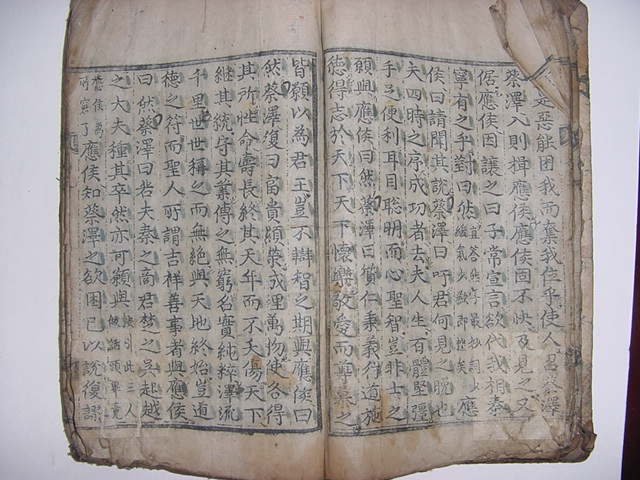 是惡能困我而奪我位乎使人召蔡澤
蔡澤入則揖應侯應侯固不快及見之又
倨應侯因讓之曰子常宣言欲代我相秦
寧有之乎對曰然應
侯曰請聞其說蔡澤曰吁君何見之晚也
夫四時之序成功者去夫人生百體堅彊
手足便利耳目聰明而心聖智豈非士之
願與應侯曰然蔡澤曰質仁秉義行道施
德得志於天下天下懷樂敬愛而尊慕之
皆願以為君王豈不辯智之期與應侯曰
然蔡澤復曰富貴顯榮成理萬物使各得
其所性命壽長終其天年而不夭傷天下
繼其統守其業傳之無窮名實純粹澤流
千里世世稱之而無絕與天地終始豈道
德之符而聖人所謂吉祥善事者與應侯
曰然蔡澤曰若夫秦之商君楚之吳起越
之大夫種其卒然亦可願與引此三人做話頭
應侯知蔡澤之欲困己以說復謬